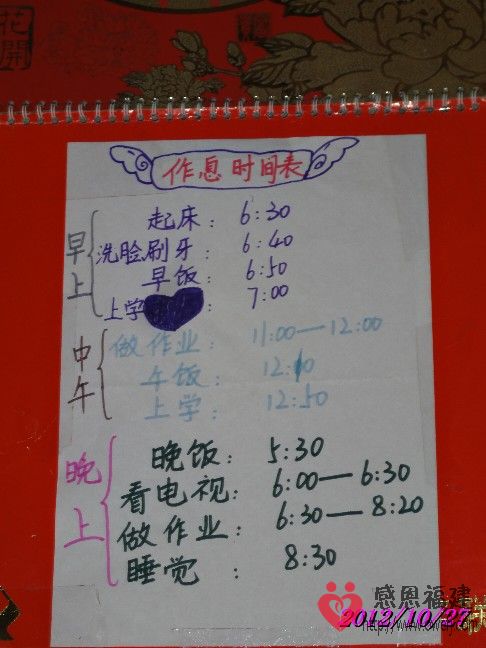 花
開
作息时间表
早上
起床：6:30
洗脸刷牙：6:40
早饭：6:50
上学：7:00
中午
做作业：11:00—12:00
午饭：12:10
上学：12:50
晚上
晚饭：5:30
看电视：6:00—6:30
做作业：6:30—8:20
睡觉：8:30
感恩福建
2012/10/27